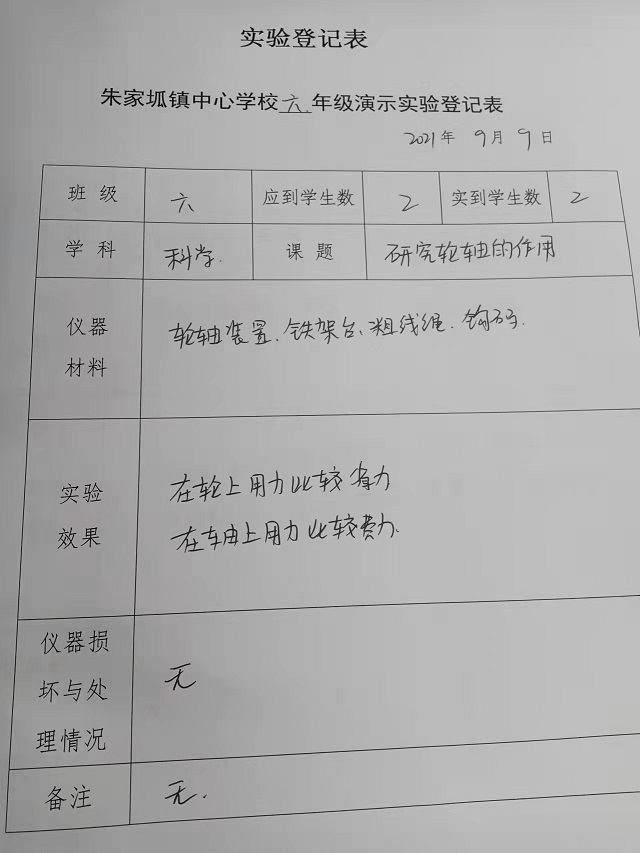 实验登记表
朱家坬镇中心学校六年级演示实验登记表
2021年 9月 9日
班级 六 应到学生数 2 实到学生数 2
学科 科学. 课题 研究轮轴的作用
仪器
材料
轮轴装置、铁架台、粗线绳、钩码.
实验
效果
在轮上用力比较省力
在轴上用力比较费力.
仪器损
坏与处
理情况
无
备注 无.